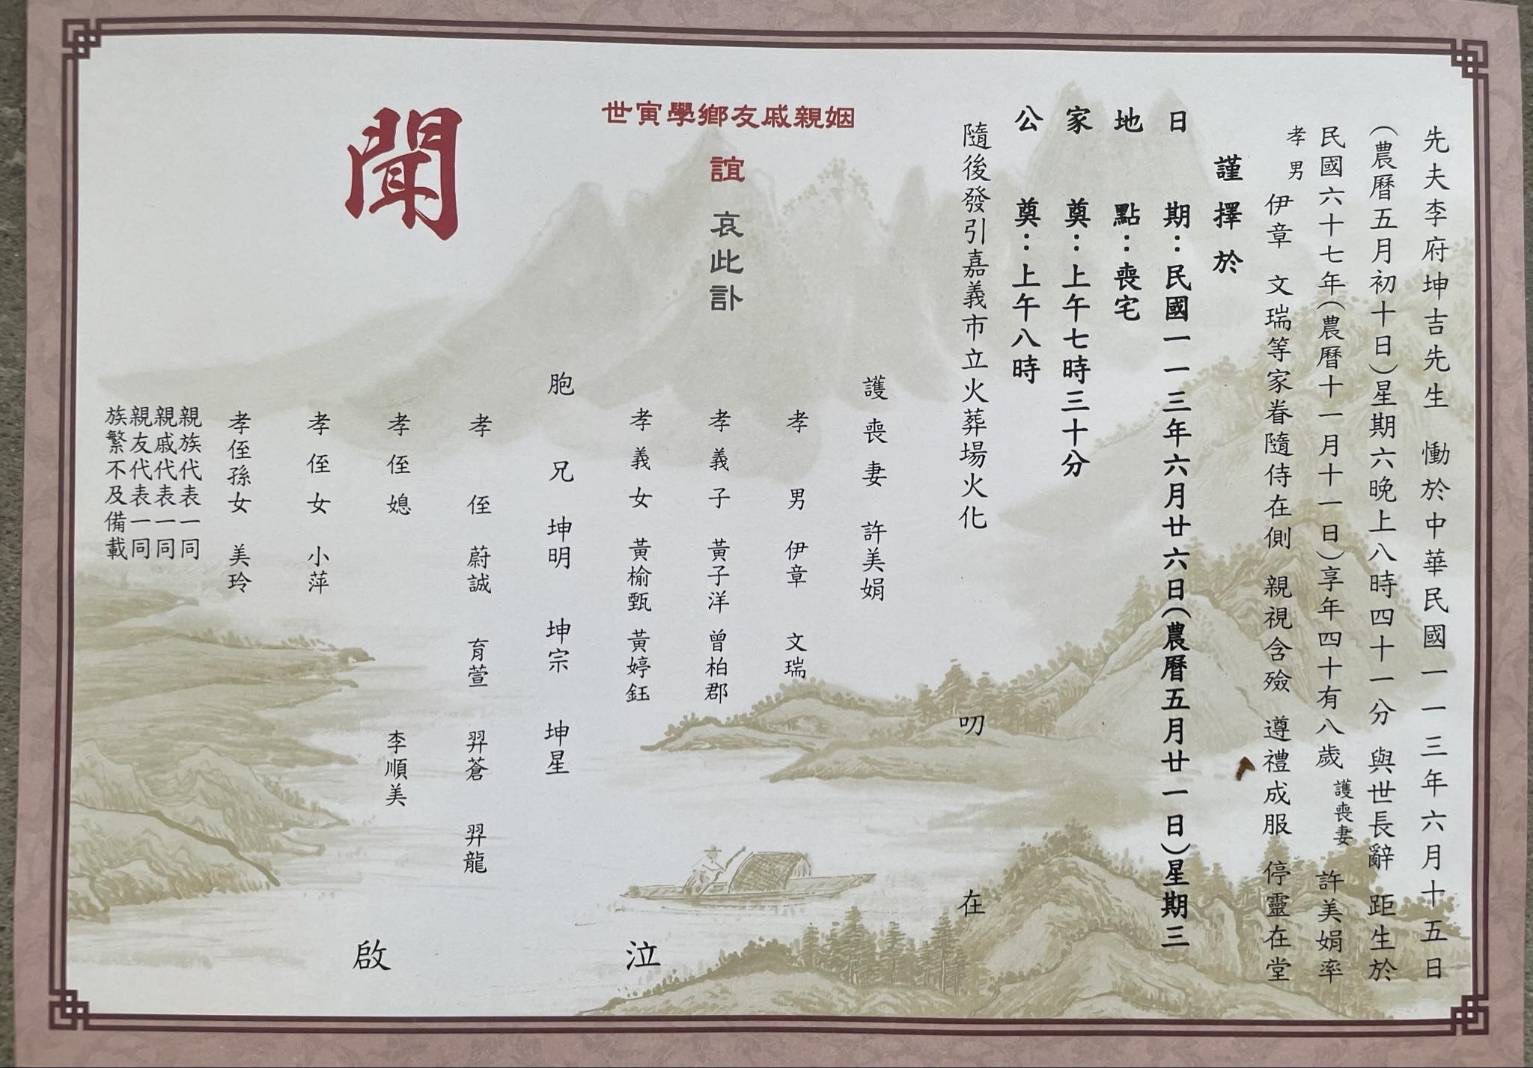 先夫李府坤吉先生　慟於中華民國一一三年六月十五日
（農曆五月初十日）星期六晚上八時四十一分　與世長辭　距生於
民國六十七年（農曆十一月十一日）享年四十有八歲　護喪妻　許美娟率
孝男　伊章　文瑞等家眷隨侍在側　親視含殮　遵禮成服　停靈在堂
謹擇於
日期：民國一一三年六月廿六日（農曆五月廿一日）星期三
地點：喪宅
家奠：上午七時三十分
公奠：上午八時
隨後發引嘉義市立火葬場火化
叨在
姻親戚友鄉學寅世
誼
哀此訃
聞
護喪妻　許美娟
孝男　伊章　文瑞
孝義子　黃子洋　曾柏郡
孝義女　黃榆甄　黃婷鈺
胞兄　坤明　坤宗　坤星
孝侄　蔚誠　育萱　羿蒼　羿龍
孝侄媳　李順美
孝侄女　小萍
孝侄孫女　美玲
親族代表一同
親戚代表一同
親友代表一同
族繁不及備載
泣
啟